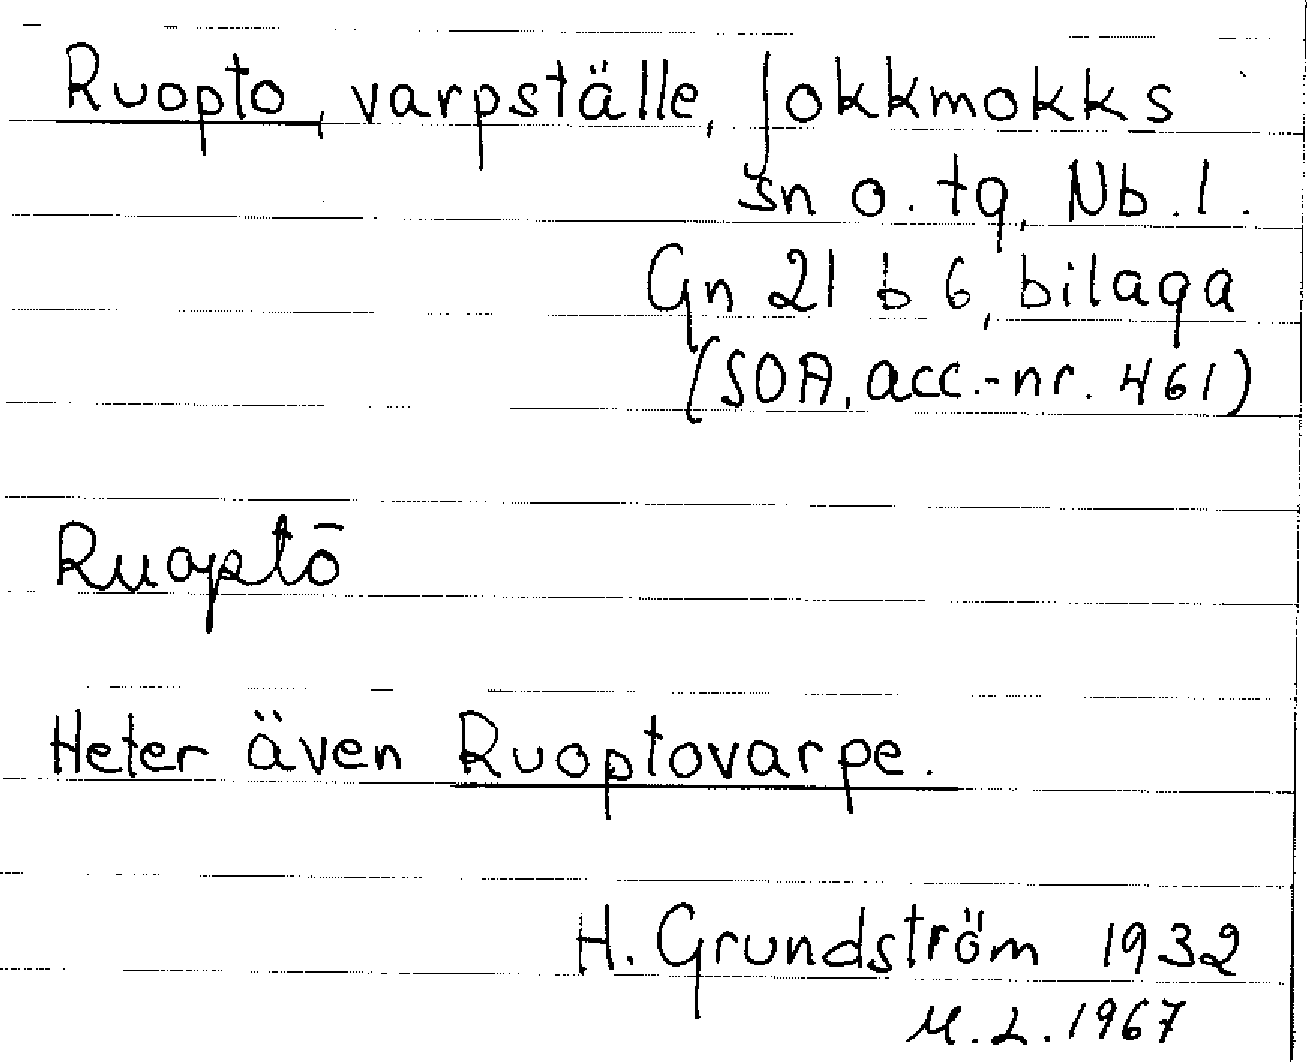 Ruopto, varpställe, Jokkmokks
sn o. tg, Nb. l.
Gn 21 b 6, bilaga
(SOA, acc.-nr. 461)
Ruoptō
Heter även Ruoptovarpe.
H. Grundström 1932
M.L. 1967